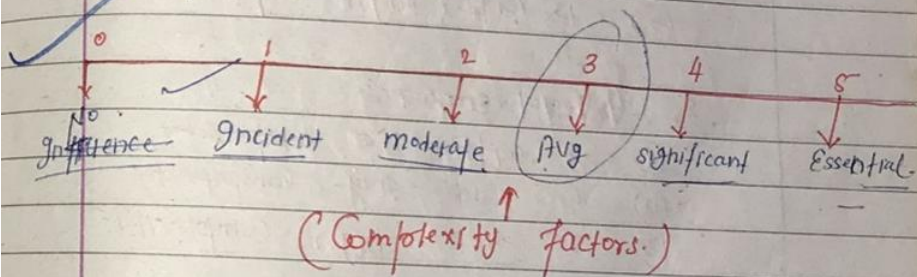 0 1 2 3 4 5
No
Influence Incident moderate Avg significant Essential.
(Complexity factors.)